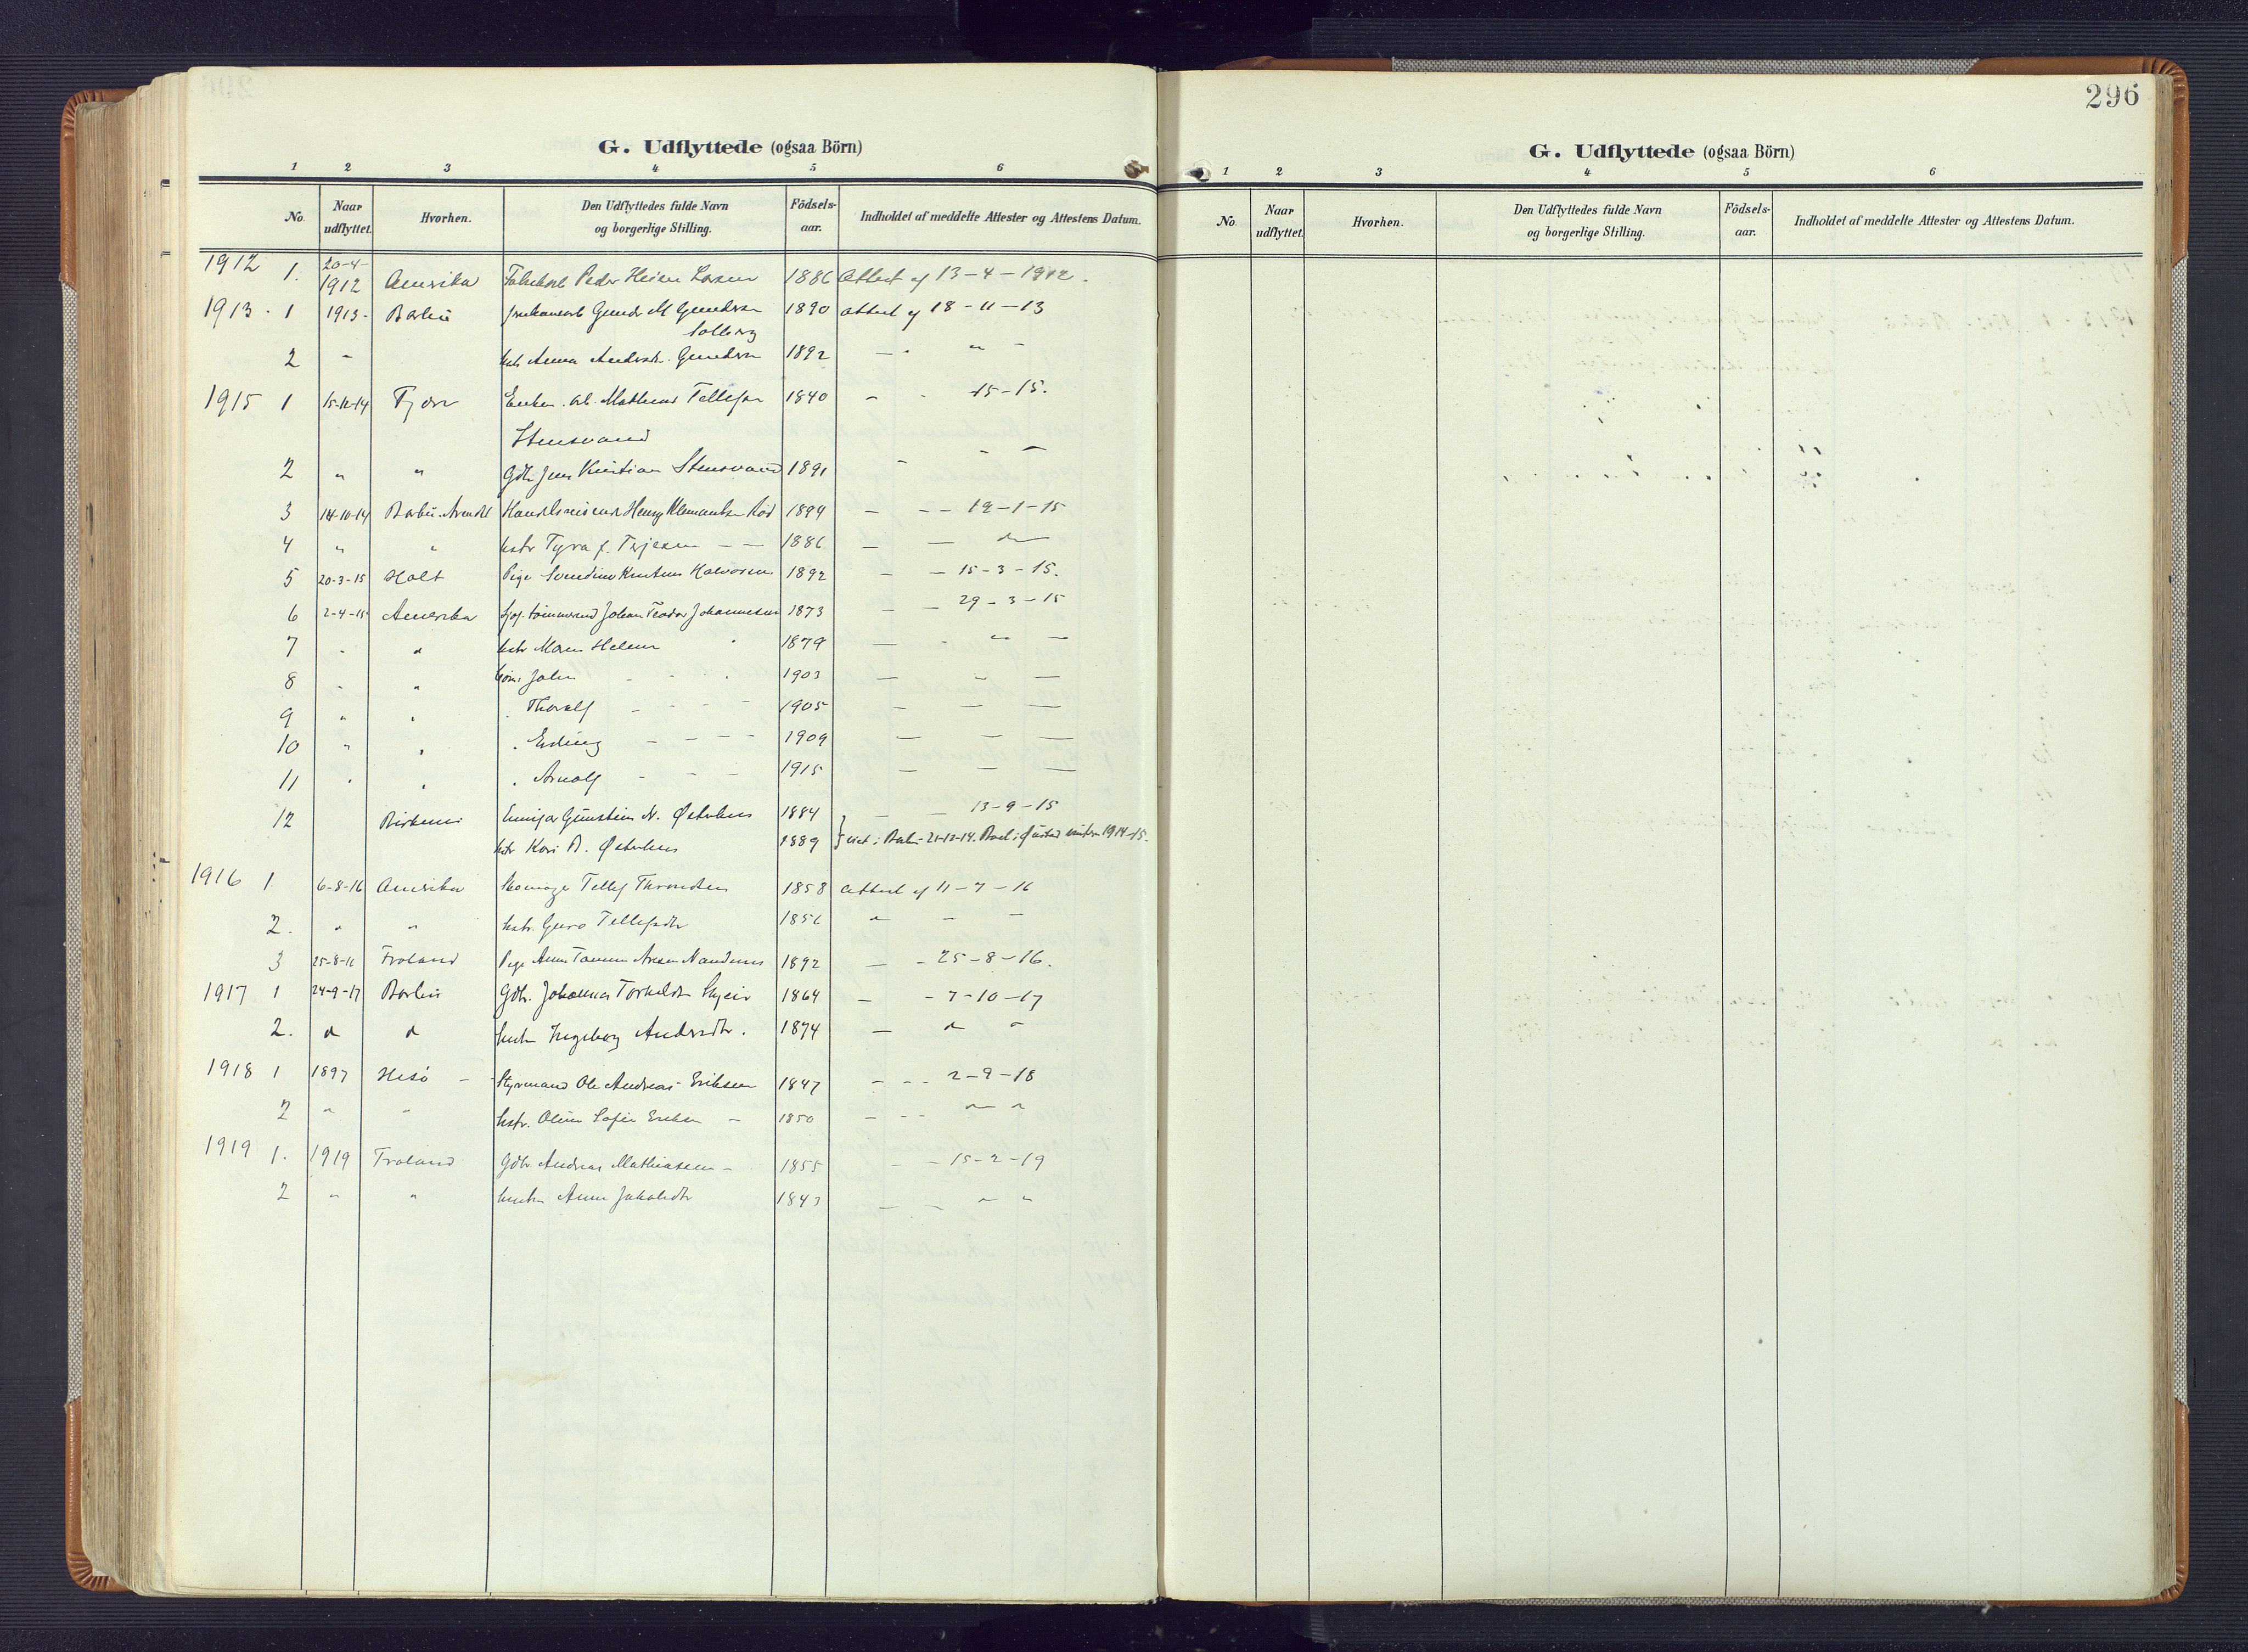 296
G. Udflyttede (ogsaa Börn)
1 2 3 4 5 6
No. Naar udflyttet. Hvorhen. Den Udflyttedes fulde Navn og borgerlige Stilling. Födsels-aar. Indholdet af meddelte Attester og Attestens Datum.
1912 1. 20-4-1912 Amerika Peder Heim Larsen 1886 Attest af 13-4-1912.
1913. 1 1913- Barbu M Gundersen 1890 attest af 18-11-13
Solberg
2 - Anna Gundersen 1892 - " -
1915 1 15-11-14 Fjære Enkem. Mathias Tellefsen 1840 - 15-15.
Stensvand
2 " " Gdbr. Jens Kristian Stensvand 1891 - - -
3 14-10-14 Barbu. Arendal Handelsreisende Henry Klemantsen Röd 1894 - - - 19-1-15
4 " " hstr Tyra f. Terjesen - - 1886 - - d -
5 20-3-15 Holt Pige Halvorsen 1892 - - 15-3-15.
6 2-4-15 Amerika tömmermand Johan Teodor Johannessen 1873 - - 29-3-15
7 " " hstr Maren Helene 1879 - - " -
8 " " börn: John - - - 1903 - - -
9 " " " Thoralf - - - - 1905 - - -
10 " " " Erling - - - - 1909 - - -
11 " " " Arnolf - - - 1915 - - -
12 Birkenes Gunstein N. Østerhus 1884 - - 13-9-15
hstr Kari B. Østerhus 1889 } viet i Barbu 21-12-14. 1914-15.
1916 1 6-8-16 Amerika Skomager Tellef Throndsen 1858 Attest af 11-7-16
2. " " hstr. Guro Tellefsdtr 1856 " - -
3 25-8-16 Froland Pige 1892 - - 25-8-16.
1917 1 24-9-17 Barbu Gdbr. Johannes Torkeldsen 1864 - - 7-10-17
2. d d hustru Ingeborg Andersdtr. 1874 - d "
1918 1 1897 Hisö - Styrmand Ole Andreas Eriksen 1847 - - - 2-9-18
2 " " hstr. Oline Sofie Eriksen - 1850 - - - " "
1919 1. 1919 Froland Gdbr. Andreas Mathiasen - 1855 - - 15-2-19
2 " " hustru Anne Jakobsdtr 1843 - - " "
G. Udflyttede (ogsaa Börn)
1 2 3 4 5 6
No. Naar udflyttet. Hvorhen. Den Udflyttedes fulde Navn og borgerlige Stilling. Födsels-aar. Indholdet af meddelte Attester og Attestens Datum.